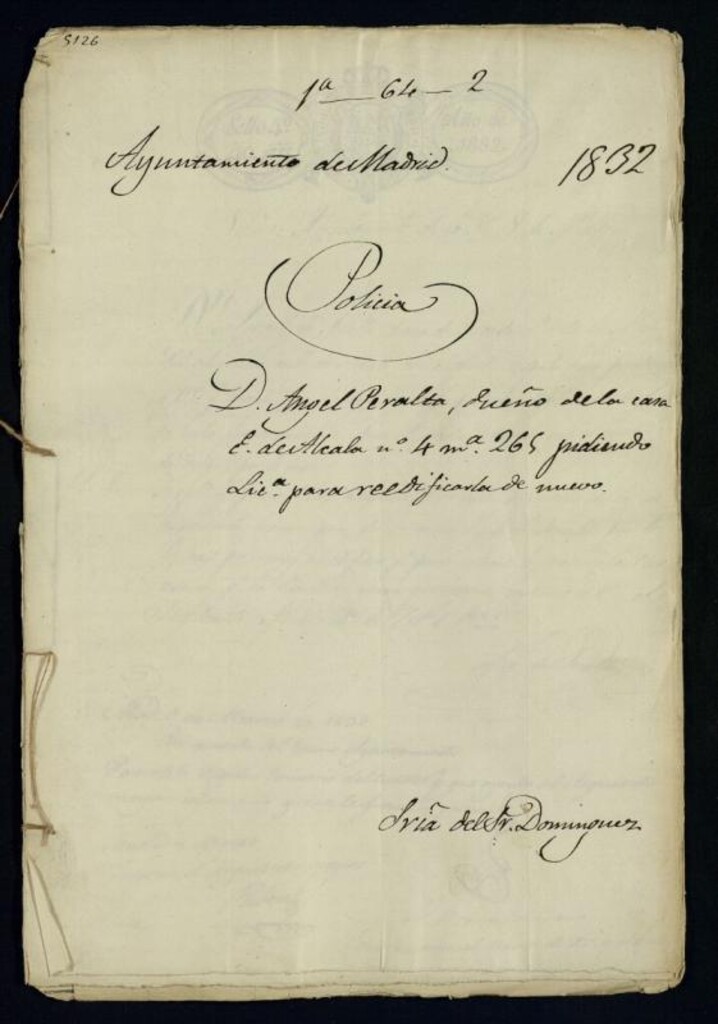 5126
1ª — 64 — 2
Ayuntamiento de Madrid. 1832
Policia
D. Angel Peralta, dueño de la casa
C. de Alcala nº 4 mª. 265 pidiendo
Licª. para reedificarla de nuevo.
Sria del Sr. Dominguez